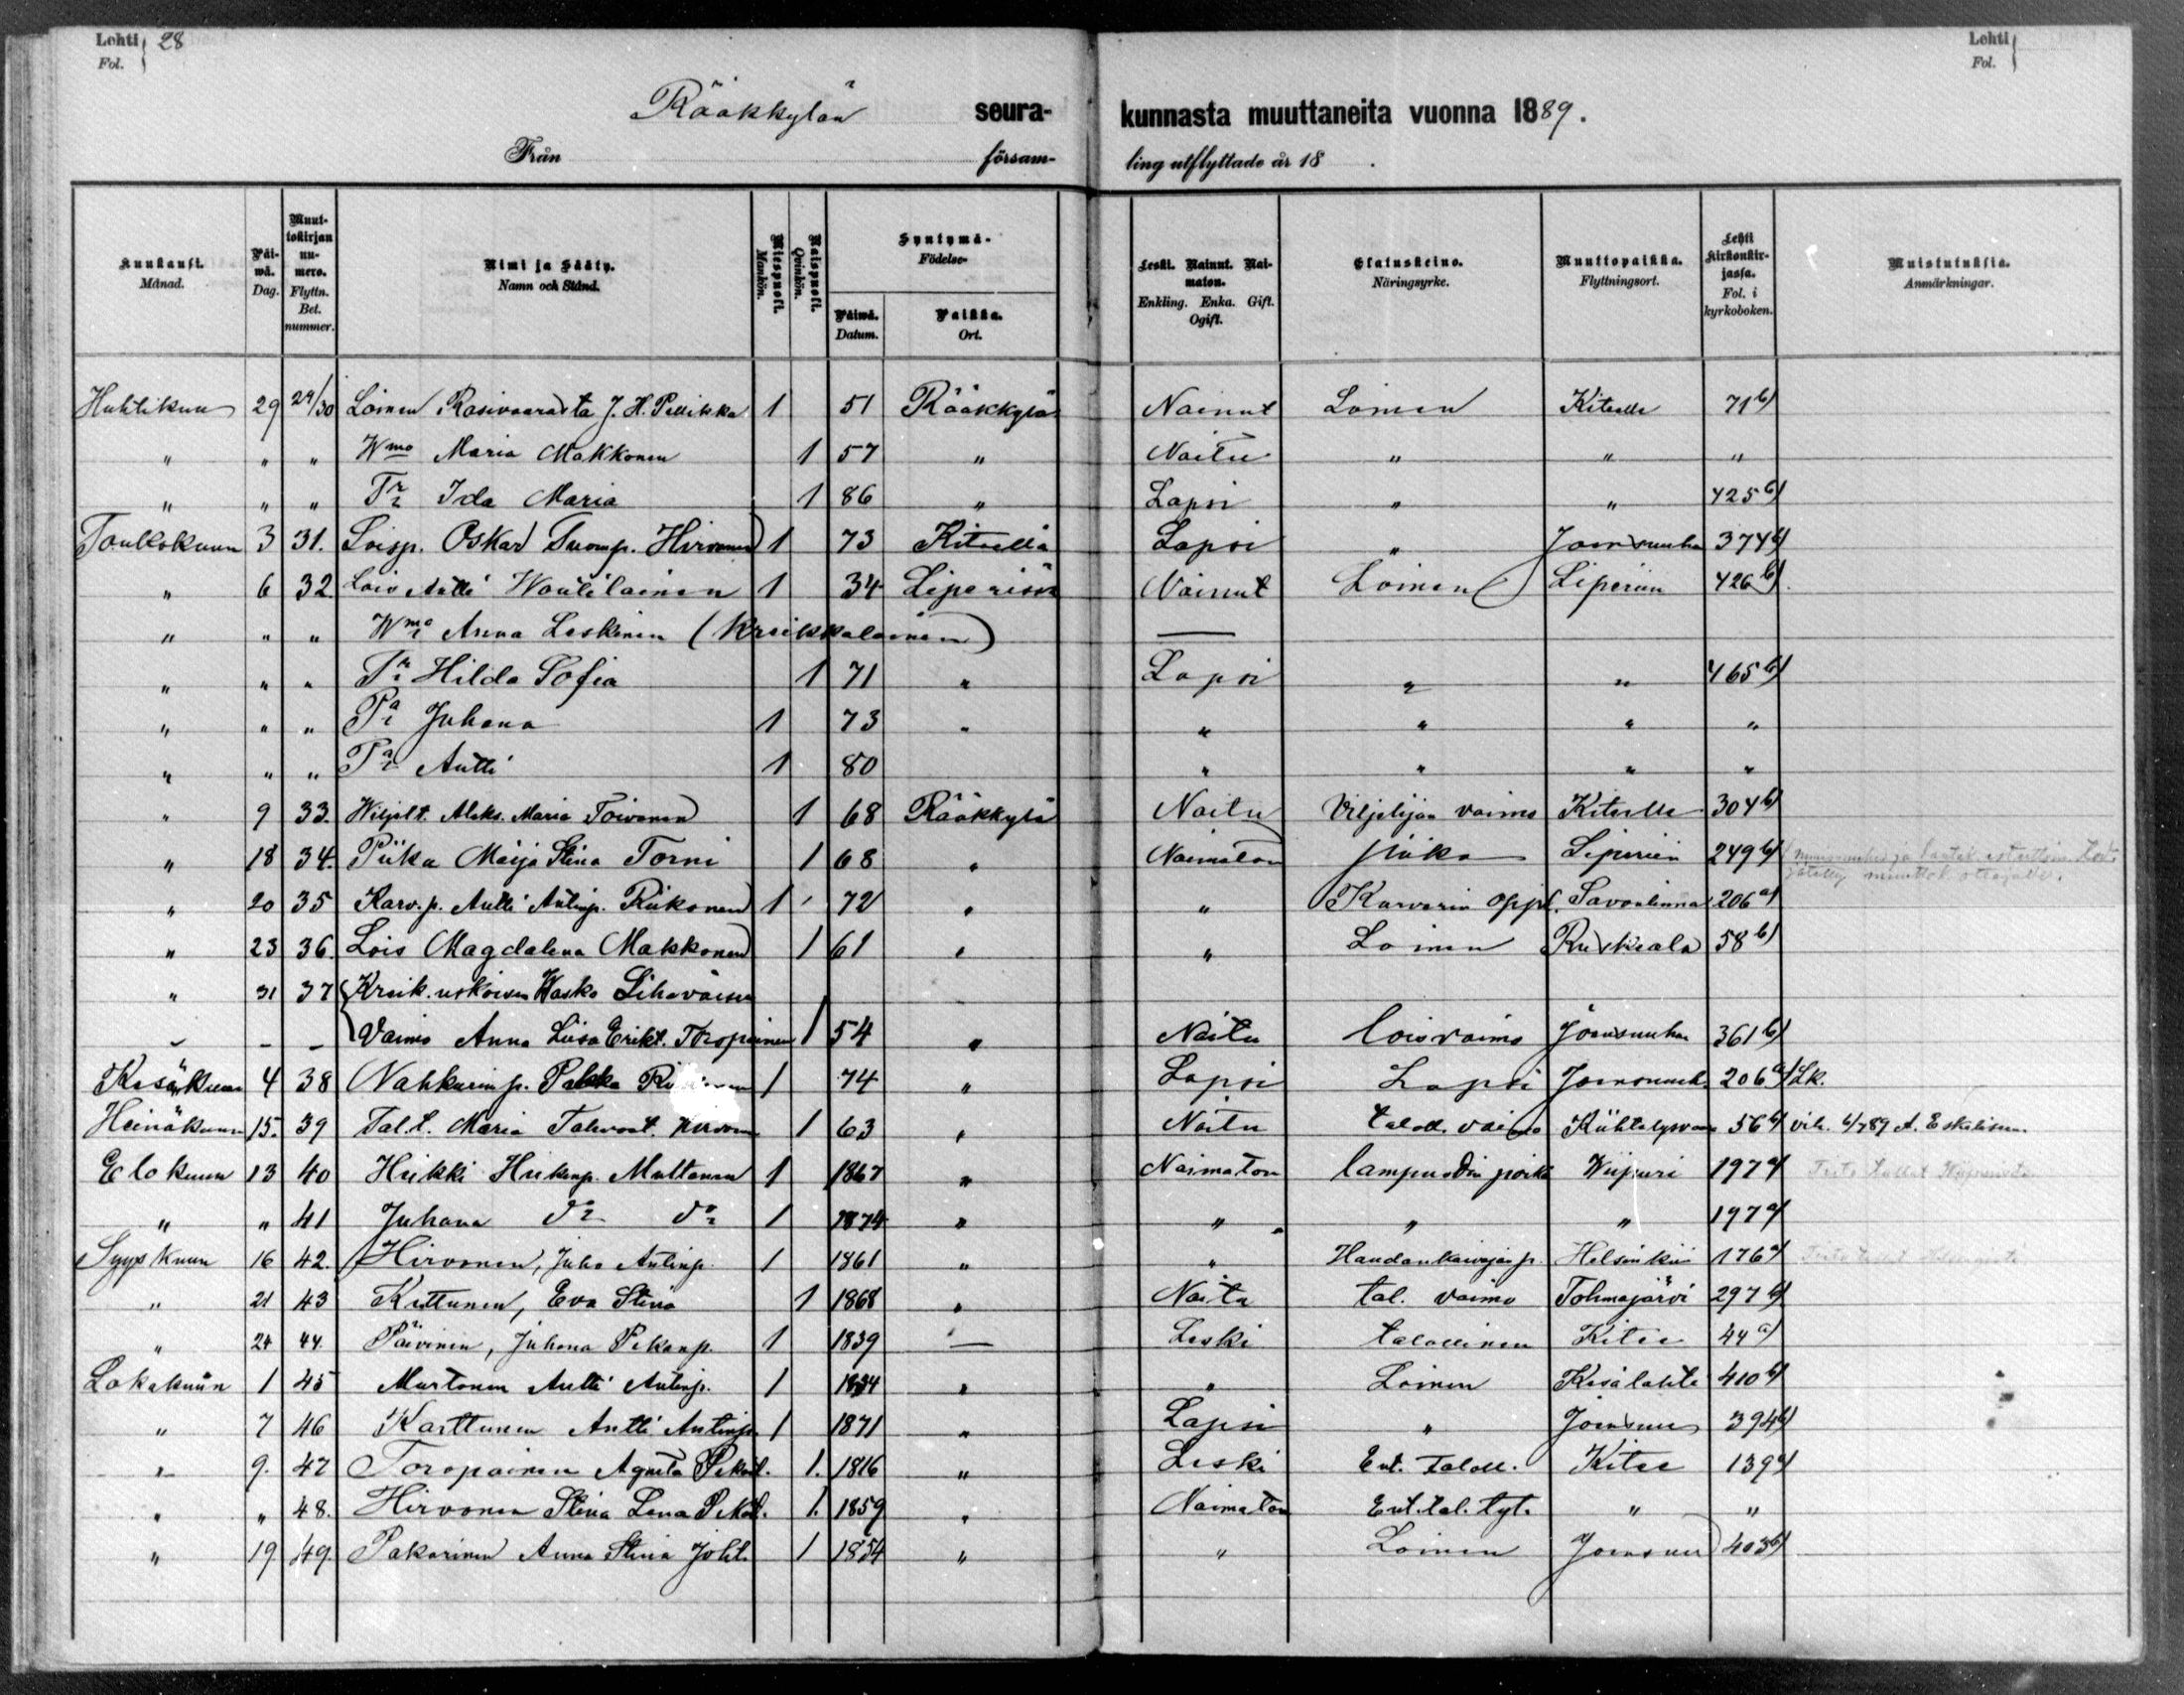 Lehti 28
Fol.
Lehti
Fol.
Rääkkylän seura- kunnasta muuttaneita vuonna 1889.
Från försam- ling utflyttade år 18 .
Kuukausi. Månad. Päi-wä. Dag. Muut-tokirjan nu-mero. Flyttn. Bet. nummer. Nimi ja Sääty. Namn och Stånd. Miespuoli. Mankön. Naispuoli. Qvinkön. Syntymä- Födelse- Päiwä. Datum. Paikka. Ort. Leski. Nainut. Nai-maton. Enkling. Enka. Gift. Ogift. Elatuskeino. Näringsyrke. Muuttopaikka. Flyttningsort. Lehti Kirkonkir-jassa. Fol. i kyrkoboken. Muistutuksia. Anmärkningar.
Huhtikuu 29 29/30 Loinen Rasivaarasta J. H. Pellikka 1 51 Rääkkylä Nainut Loinen Kiteelle 71 b)
" " " Wmo Maria Makkonen 1 57 " Naitu " " "
" " " Tr Ida Maria 1 86 " Lapsi " " 425 b)
Toukokuun 3 31. Loisp. Oskar Tuomp. Hirvonen 1 73 Kiteellä Lapsi " Joensuuhu 374
" 6 32 Lois Antti Woutilainen 1 34 Liperissä Nainut Loinen Liperiin 426 b)
" " " Wmo Anna Leskinen (Kreikkalainen) —
" " " Tr Hilda Sofia 1 71 " Lapsi " " 465 b)
" " " Pa Juhana 1 73 " " " " "
" " " Pa Antti 1 80 " " " "
" 9 33. Wiljelt. Aleks. Maria Toivonen 1 68 Rääkkylä Naitu Viljelijän vaimo Kiteelle 304 b)
" 18 34. Piika Maija Stina Torni 1 68 " Naimaton piika Liperiin 249 b)
" 20 35 Karv. p. Antti Antinp. Riikonen 1 72 " " Karvarin oppil. Savonlinna 206 a)
" 23 36. Lois Magdalena Makkonen 1 61 " " Loinen Ruskeala 58 b)
" 31 37 Kreik. uskoisen Wasko Lihavaisen
- - - Vaimo Anna Liisa Erikt. Toropainen 1 54 " Naitu loisvaimo Joensuuhun 361 b)
Kesäkuun 4 38 Nahkurin p. Pekka 1 74 " Lapsi Lapsi Joensuuh. 206 a) Lk.
Heinäkuun 15. 39 Tal. t. Maria Tahvont. Hirvonen 1 63 " Naitu taloll. vaimo Kiihtelysvaara 56 vih. 6/7 89 A. Eskelisen.
Elokuun 13 40 Heikki Heikinp. Multanen 1 1867 " Naimaton lampuodin poika Wiipuri 197 a)
" " 41 Juhana do do 1 1874 " " " " 197 a)
Syyskuun 16 42. Hirvonen, Juho Antinp. 1 1861 " " Haudankaivajan p. Helsinkiin 176 a)
" 21 43 Kettunen, Eva Stina 1 1868 " Naitu tal. vaimo Tohmajärvi 297 b)
" 24 44. Päivinen, Juhana Pekanp. 1 1839 — Leski talollinen Kitee 44 a)
Lokakuun 1 45 Martonen Antti Antinp. 1 1834 " " Loinen Kesälahti 410 b)
" 7 46 Karttunen Antti Antinp. 1 1871 " Lapsi " Joensuu 394 b)
" 9. 47 Toropainen Agneta Pekant. 1. 1816 " Leski Ent. Taloll. Kitee 139 a)
" " 48. Hirvonen Stina Lena Pekant. 1. 1859 " Naimaton Ent. tal. tyt. " "
" 19 49. Pakarinen Anna Stina Joht. 1 1854 " " Loinen Joensuu 403 b)